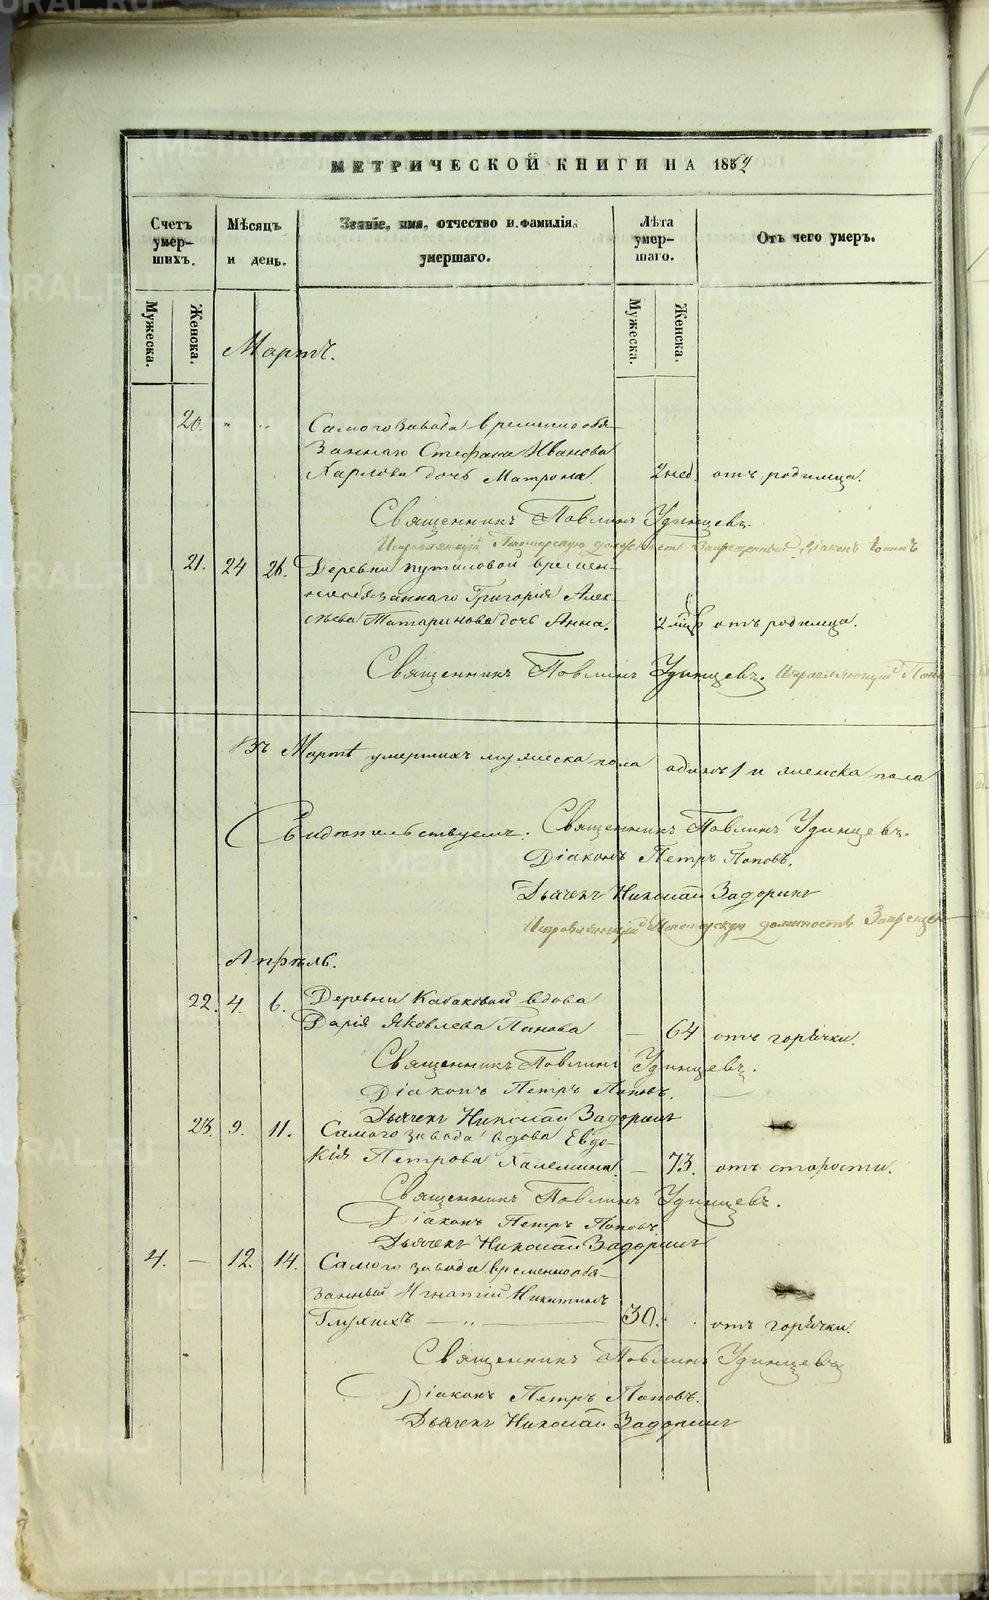 МЕТРИЧЕСКОЙ КНИГИ НА 1864
Счетъ умер-шихъ.
Мѣсяцъ и день.
Званіе, имя, отчество и фамилія умершаго.
Лѣта умер-шаго.
Отъ чего умеръ.
Мужеска.
Женска.
Мужеска.
Женска.
Мартъ.
20. " " Самого завода временнообя-
заннаго Стефана Иванова
Карлова дочь Матрона 2 нед. отъ родимца.
Священникъ Павлинъ Удинцевъ.
Исправляющій Пономарскую должность Запрещенный Діаконъ Іоаннъ
21. 24 26. Деревни Путиловой времен-
нообязаннаго Григорія Алек-
сѣева Татаринова дочь Анна. 2 отъ родимца.
Священникъ Павлинъ Удинцевъ. Исправляющій Поно
Въ Мартѣ умершихъ мужеска пола одинъ 1 и женска пола
Свидѣтельствуемъ: Священникъ Павлинъ Удинцевъ.
Діаконъ Петръ Поповъ.
Дьячекъ Николай Задоринъ
Исправляющій Пономарскую должность Запрещен
Апрѣль.
22. 4. 6. Деревни Кабаковой вдова
Дарія Яковлева Панова — 64 отъ горячки.
Священникъ Павлинъ Удинцевъ.
Діаконъ Петръ Поповъ.
Дьячекъ Николай Задоринъ
23. 9. 11. Самого завода вдова Евдо-
кія Петрова Халемина — 73. отъ старости.
Священникъ Павлинъ Удинцевъ.
Діаконъ Петръ Поповъ
Дьячекъ Николай Задоринъ
4. — 12. 14. Самого завода временнообя-
занный Игнатій Никитинъ
Глухихъ — " — 30. отъ горячки.
Священникъ Павлинъ Удинцевъ
Діаконъ Петръ Поповъ.
Дьячекъ Николай Задоринъ
METRIKI.GASO-URAL.RU